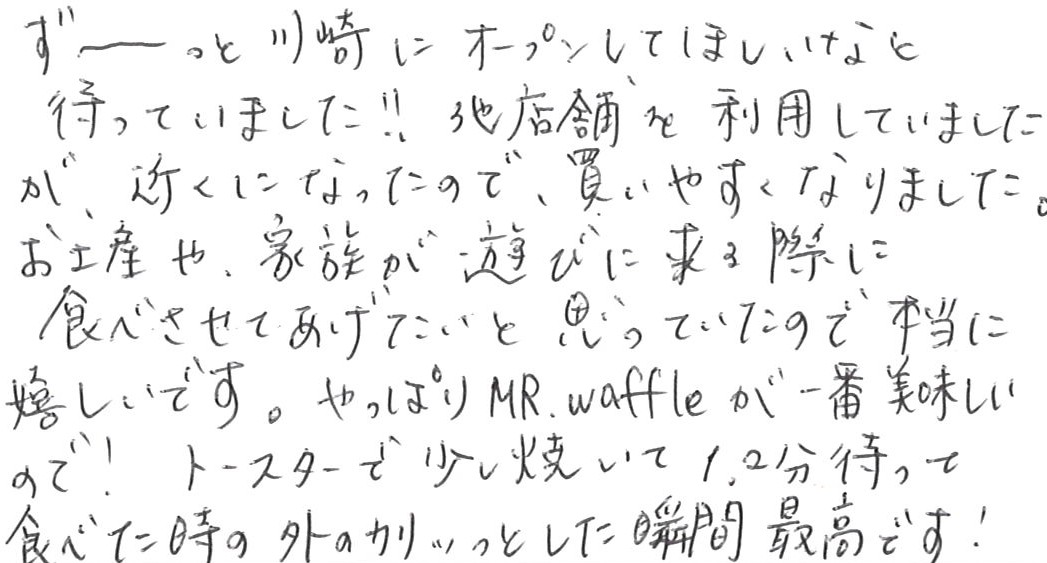 ずーーっと川崎にオープンしてほしいなと
待っていました!! 他店舗を利用していました
が、近くになったので、買いやすくなりました。
お土産や、家族が遊びに来る際に
食べさせてあげたいと思っていたので本当に
嬉しいです。やっぱりMR.waffleが一番美味しい
ので! トースターで少し焼いて1.2分待って
食べた時の外のカリッっとした瞬間最高です!